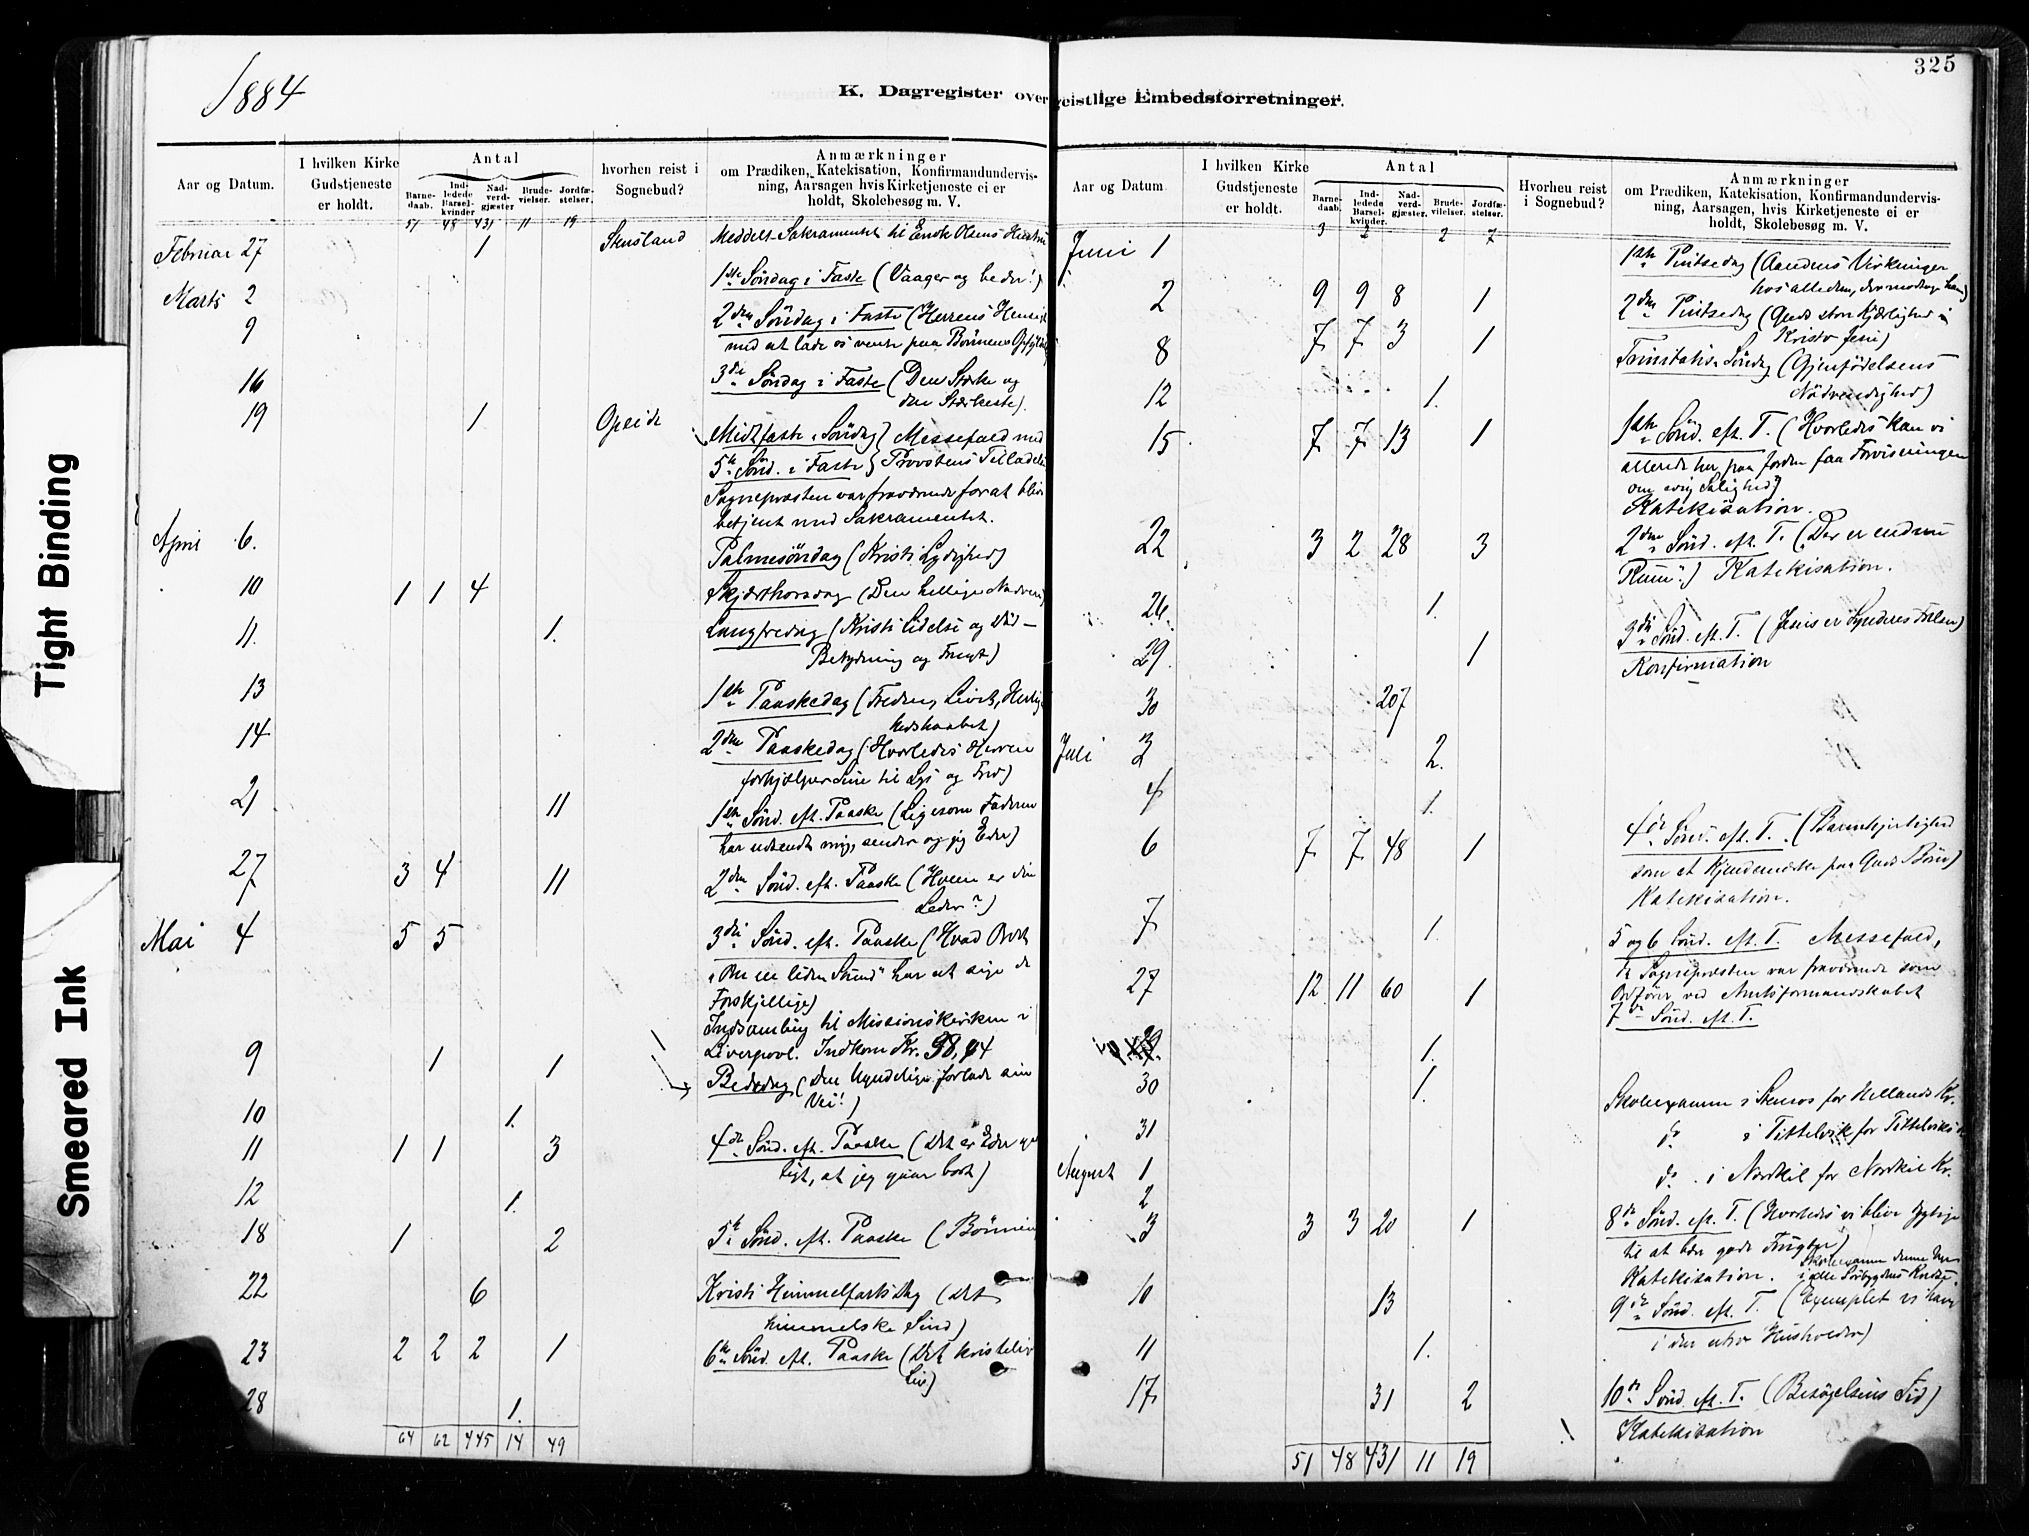 1884
325
K. Dagregister over geistlige Embedsforretninger.
Tight Binding
Smeared Ink
Aar og Datum.
I hvilken Kirke
Gudstjeneste
er holdt.
Antal
Barne-
daab.
Ind-
ledede
Barsel-
kvinder
Nad-
verd-
gjæster
Brude-
vielser.
Jordfæ-
stelser.
hvorhen reist i
Sognebud?
Anmærkninger
om Prædiken, Katekisation, Konfirmandundervis-
ning, Aarsagen hvis Kirketjeneste ei er
holdt, Skolebesøg m. V.
51 48 431 11 19
Februar 27 1 Stensland Meddelt Sakramentet til Enok Olsens Hustru
Marts 2 1ste Søndag i Faste (Vaager og beder!)
9 2den Søndag i Faste (Herrens Hensigt
med at lade os vente paa Bønnens Opfyldelse
16 3die Søndag i Faste (Den Stærke og
den Stærkeste).
19 1 Opeide Midtfaste Søndag} Messefald med
5te Sønd. i Faste} Provstens Tilladelse
Sognepræsten var fraværende for at blive
betjent med Sakramentet.
April 6. Palmesøndag (Kristi Lydighed)
10 1 1 4 Skjærthorsdag (Den hellige Nadvere)
11. 1. Langfredag (Kristi Lidelse og Død –
Betydning og Frugt)
13 1ste Paaskedag (Freden, Livet, Herlig-
hedshaabet)
14 2den Paaskedag (Hvorledes Herren
forhjælper Sine til Lys og Fred)
21 11 1ste Sønd. eft. Paaske (Ligesom Faderen
har udsendt mig, sender og jeg Eder)
27 3 4 11 2den Sønd. eft. Paaske (Hvem er din
Leder?)
Mai 4 5 5 3die Sønd. eft. Paaske (Hvad Ordet
"Om en liden Stund" har at sige de
Forskjellige)
Indsamling til Missionskirken i
Liverpool. Indkom Kr.
9 1 1 Bededag (Den Ugudelige forlade sin
Vei!)
10 1.
11 1 1 3 4de Sønd. eft. Paaske (Det er Eder gav-
ligt, at jeg gaar bort)
12 1.
18 1 2 5te Sønd. eft. Paaske (Bønnen
22 6 Kristi Himmelfartsdag (Det
himmelske Sind)
23 2 2 2 1 6te Sønd. eft. Paaske (Det kristelige
Liv)
28 1.
64 62 445 14 49
Aar og Datum
I hvilken Kirke
Gudstjeneste
er holdt.
Antal
Barne-
daab.
Ind-
ledede
Barsel-
kvinder.
Nad-
verd-
gjæster.
Brude-
vielser.
Jordfæ-
stelser.
Hvorhen reist
i Sognebud?
Anmærkninger
om Prædiken, Katekisation, Konfirmandundervis-
ning, Aarsagen, hvis Kirketjeneste ei er
holdt, Skolebesøg m. V.
Juni 1 3 2 2 7 1ste Pintsedag (Aandens Virkninger
hos alle dem, der modtage ham)
2 9 9 8 1 2den Pintsedag (Guds store Kjærlighed i
Kristo Jesu)
8 7 7 3 1 Trinitatis Søndag (Gjenfødelsens
Nødvendighed)
12 1.
15 7 7 13 1 1ste Sønd. eft. T. (Hvorledes kan vi
allerede her paa Jorden faa Forvisningen
om evig Salighed?
Katekisation.
22 3 2 28 3 2den Sønd. eft. T. (Der er endnu
Rum.) Katekisation.
26. 1.
29. 1 3die Sønd. eft. T. (Jesus er Synderes Frelser)
Konfirmation
30 207
Juli 3 2.
4 1.
6 7 7 48 1 4de Sønd. eft. T. (Barmhjertighed
som et Kjendemærke paa Guds Børn)
Katekisation.
7 1. 5 og 6 Sønd. eft. T. Messefald,
da Sognepræsten var fraværende som
Ordfører ved Amtsformandskabet
27 12 11 60 1 7de Sønd. eft. T.
1.
30 1.
Skoleexamen i Stensos for Hellands Kr.
31 do i Tittelvik for Tittelviks Kr.
August 1 do. i Nordkil for Nordkil Kr.
2
3 3 3 20 1 8de Sønd. eft. T. (Hvorledes vi blive dygtige
til at bære gode Frugter)
Katekisation. Skoleexamen denne Uge
i alle Sørbygdens Kredse.
10 13 9de Sønd. eft. T. (Exemplet vi have
i den utro Husholder)
11 1.
17 31 2 10de Sønd. eft. T. (Besøgelsens Tid)
Katekisation
51 48 431 11 19